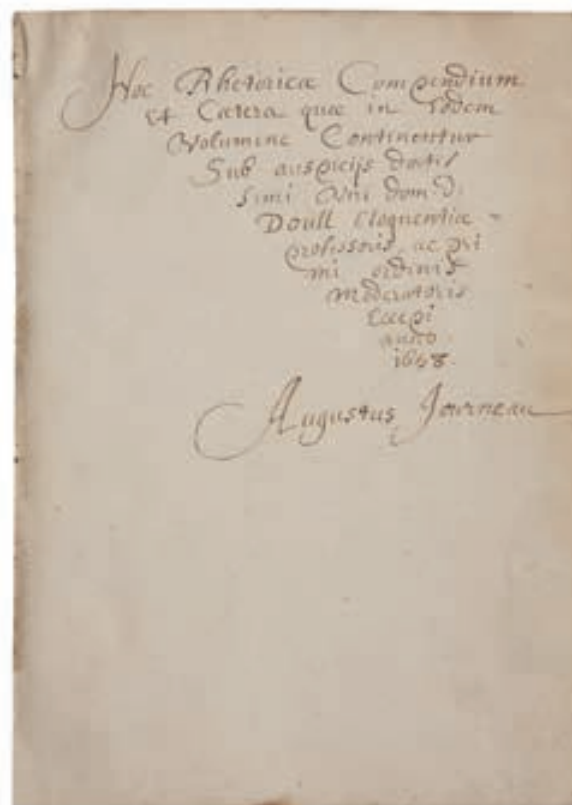 Hoc Rhetoricæ Compendium
Et Cætera quæ in Eodem
Volumine Continentur
Sub auspicijs doctis
simi Viri dom. D.
Doull Eloquentiæ
professoris ac pri
mi ordinis
Moderatoris
Excepi
anno
1658
Augustus Journeau